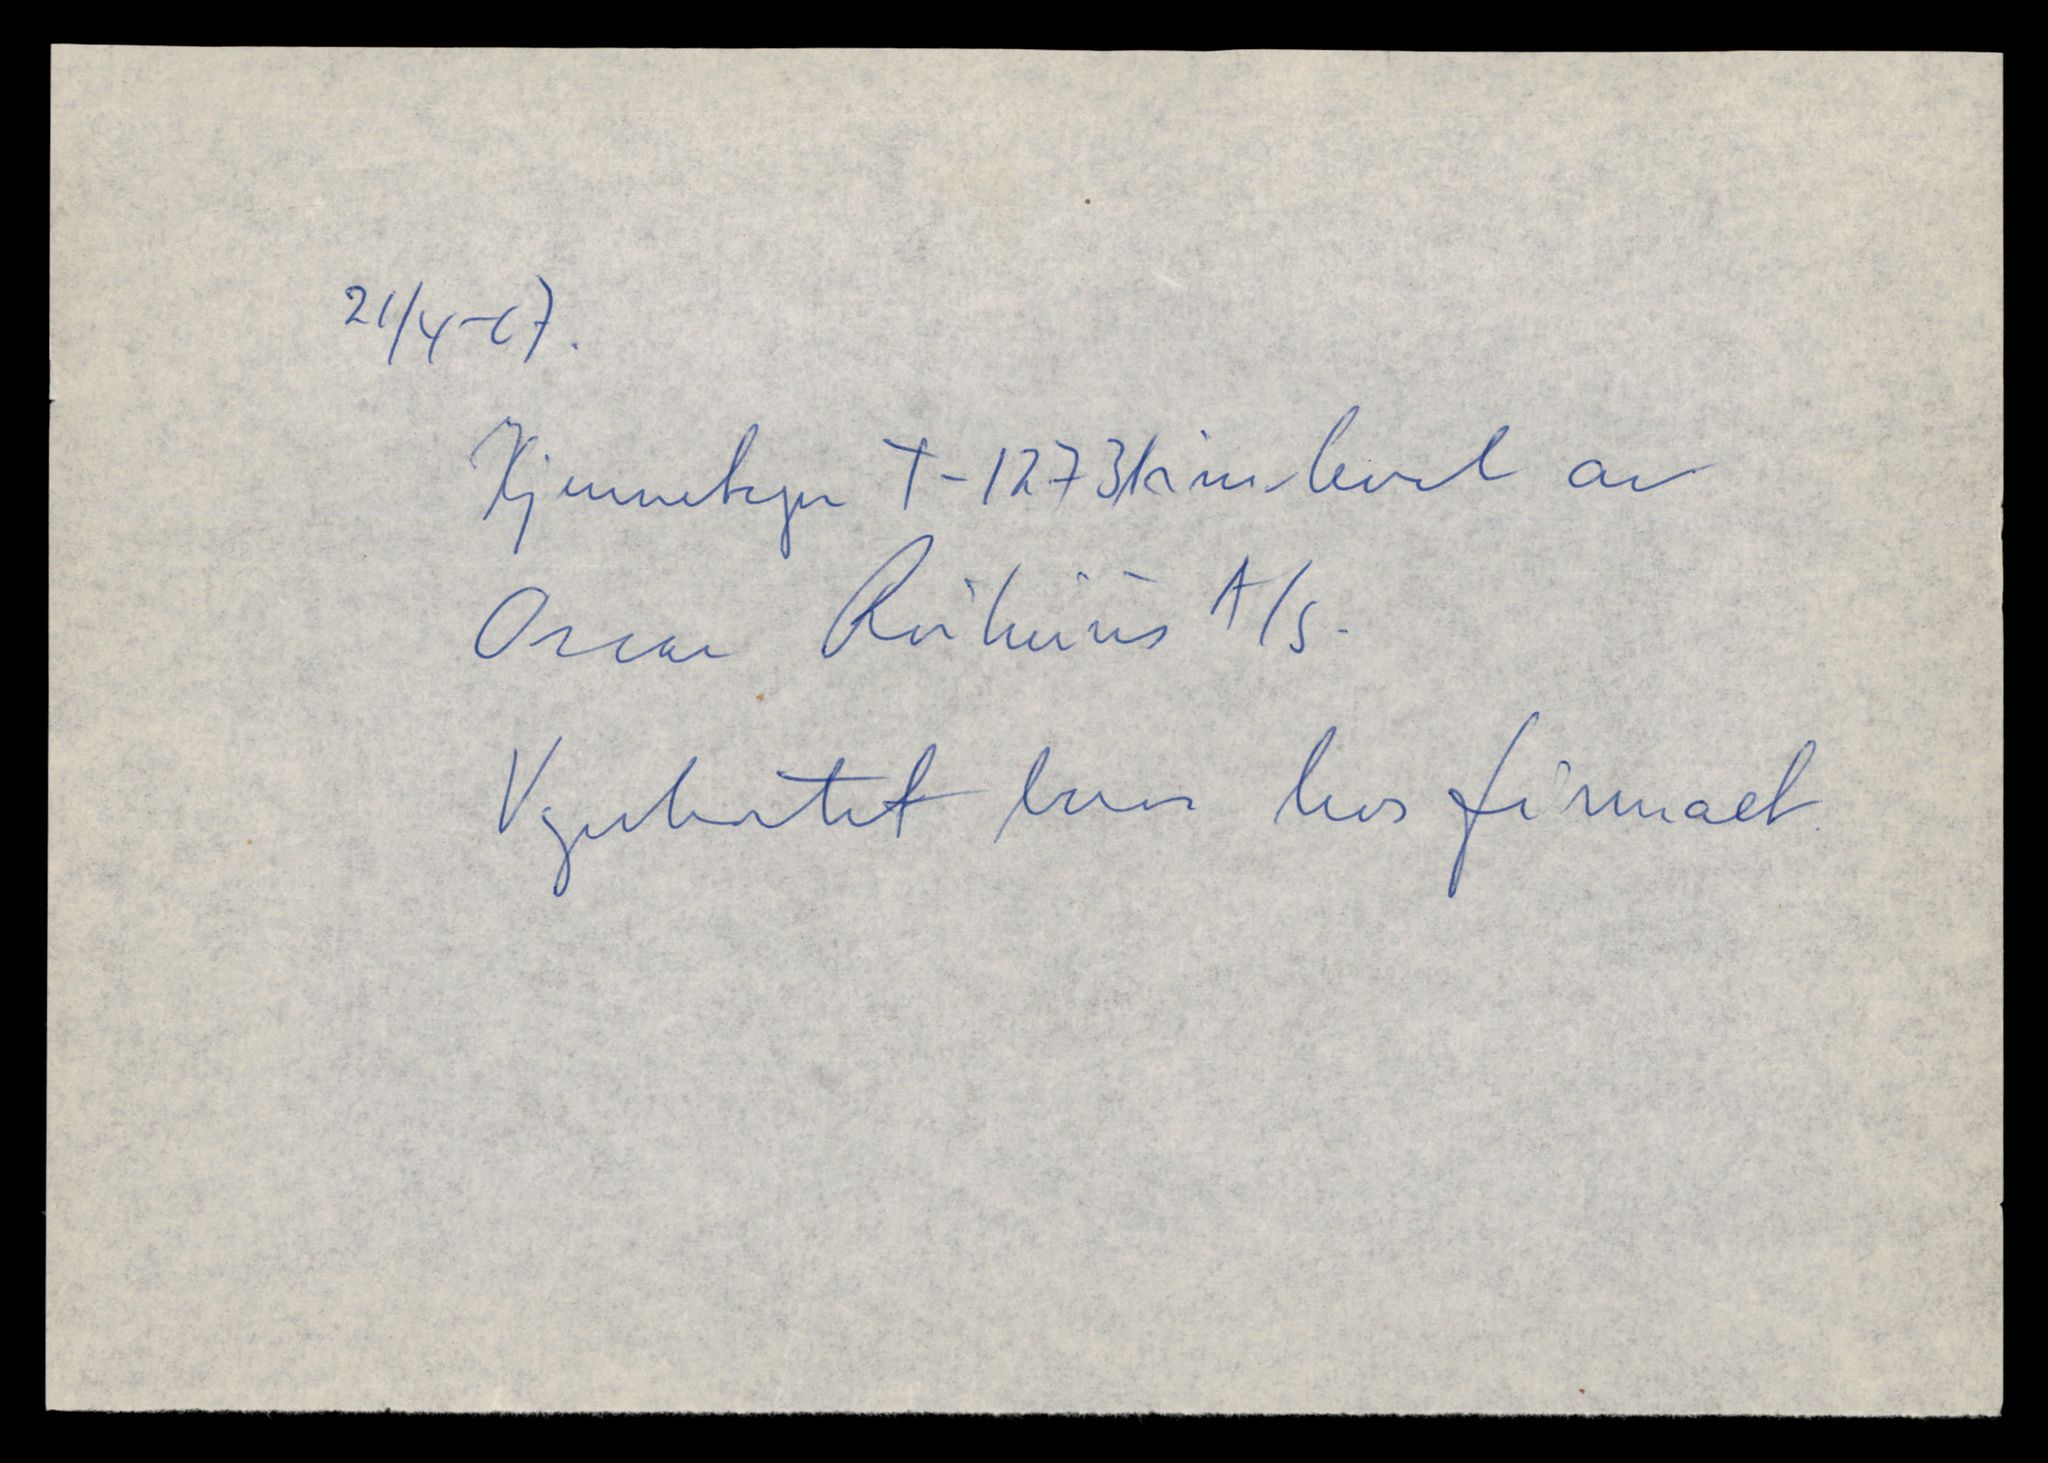 21/4-67.
Kjennetegn T-12731 innlevert av
Oscar A/S.
Vognkortet hos firmaet